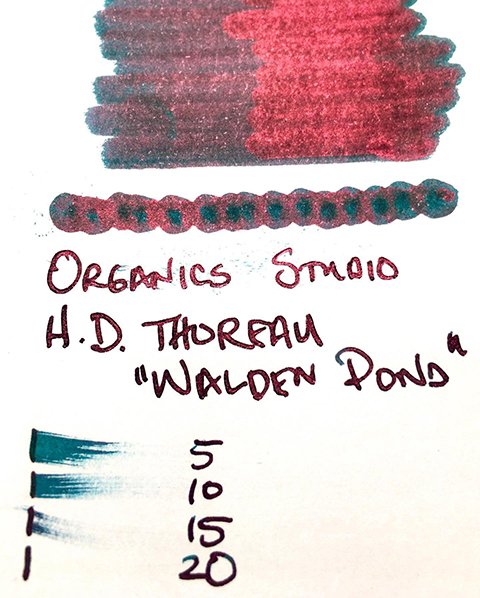 ORGANICS STUDIO
H.D. THOREAU
"WALDEN POND"
5
10
15
20